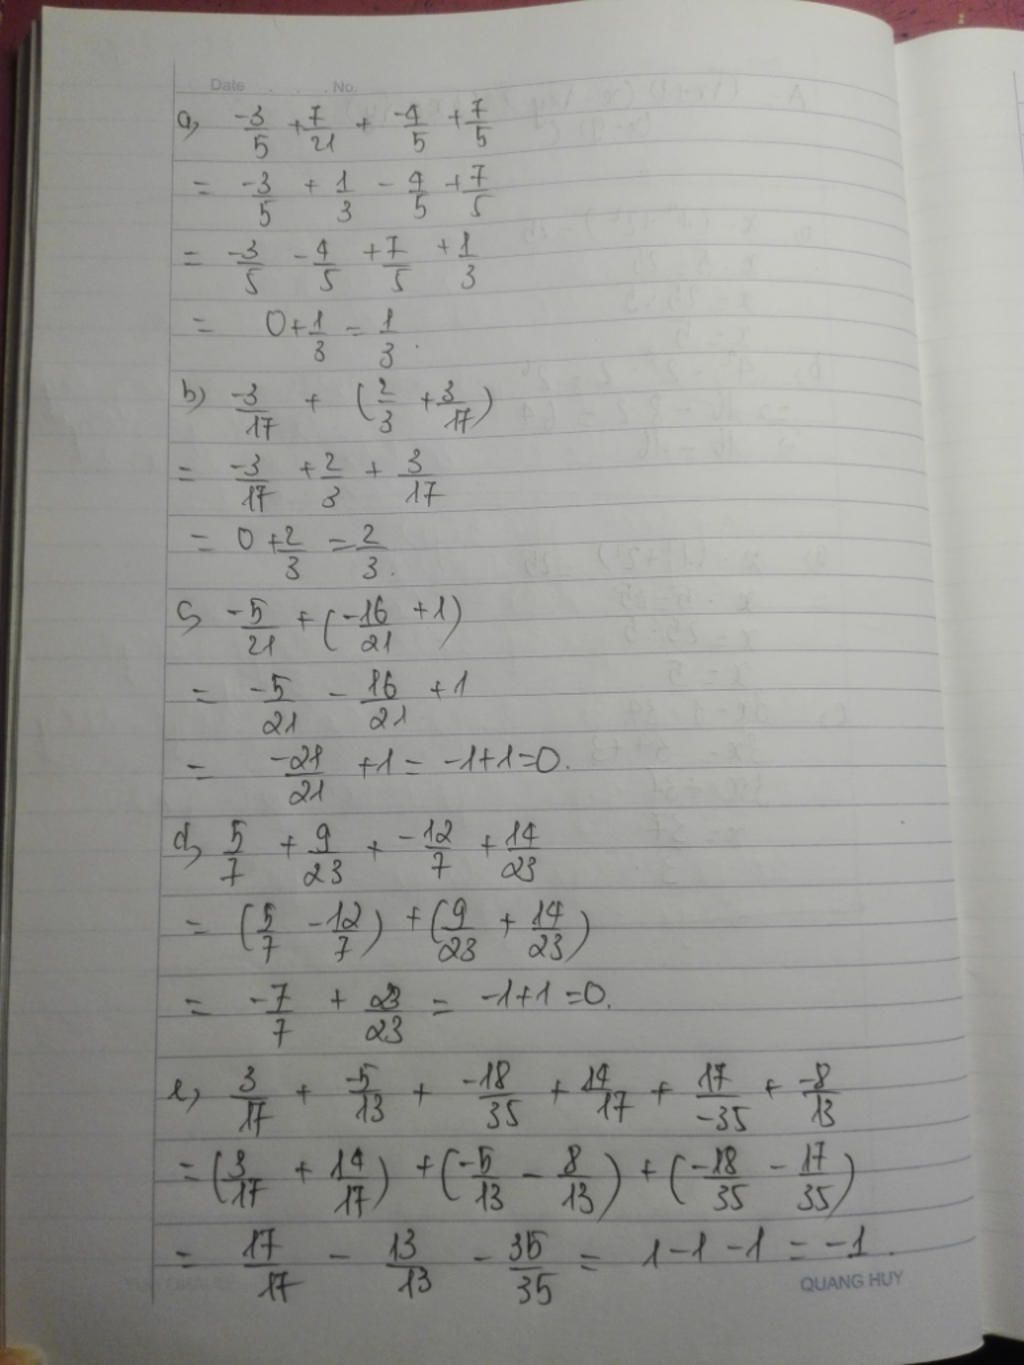 Date . . . . . No.
a, -3/5 + 7/21 + -4/5 + 7/5
= -3/5 + 1/3 - 4/5 + 7/5
= -3/5 - 4/5 + 7/5 + 1/3
= 0 + 1/3 = 1/3 .
b) -3/17 + (2/3 + 3/17)
= -3/17 + 2/3 + 3/17
= 0 + 2/3 = 2/3 .
c, -5/21 + (-16/21 + 1)
= -5/21 - 16/21 + 1
= -21/21 + 1 = -1+1=0.
d, 5/7 + 9/23 + -12/7 + 14/23
= (5/7 - 12/7) + (9/23 + 14/23)
= -7/7 + 23/23 = -1+1=0.
e, 3/17 + -5/13 + -18/35 + 14/17 + 17/-35 + -8/13
= (3/17 + 14/17) + (-5/13 - 8/13) + (-18/35 - 17/35)
= 17/17 - 13/13 - 35/35 = 1-1-1 = -1.
QUANG HUY